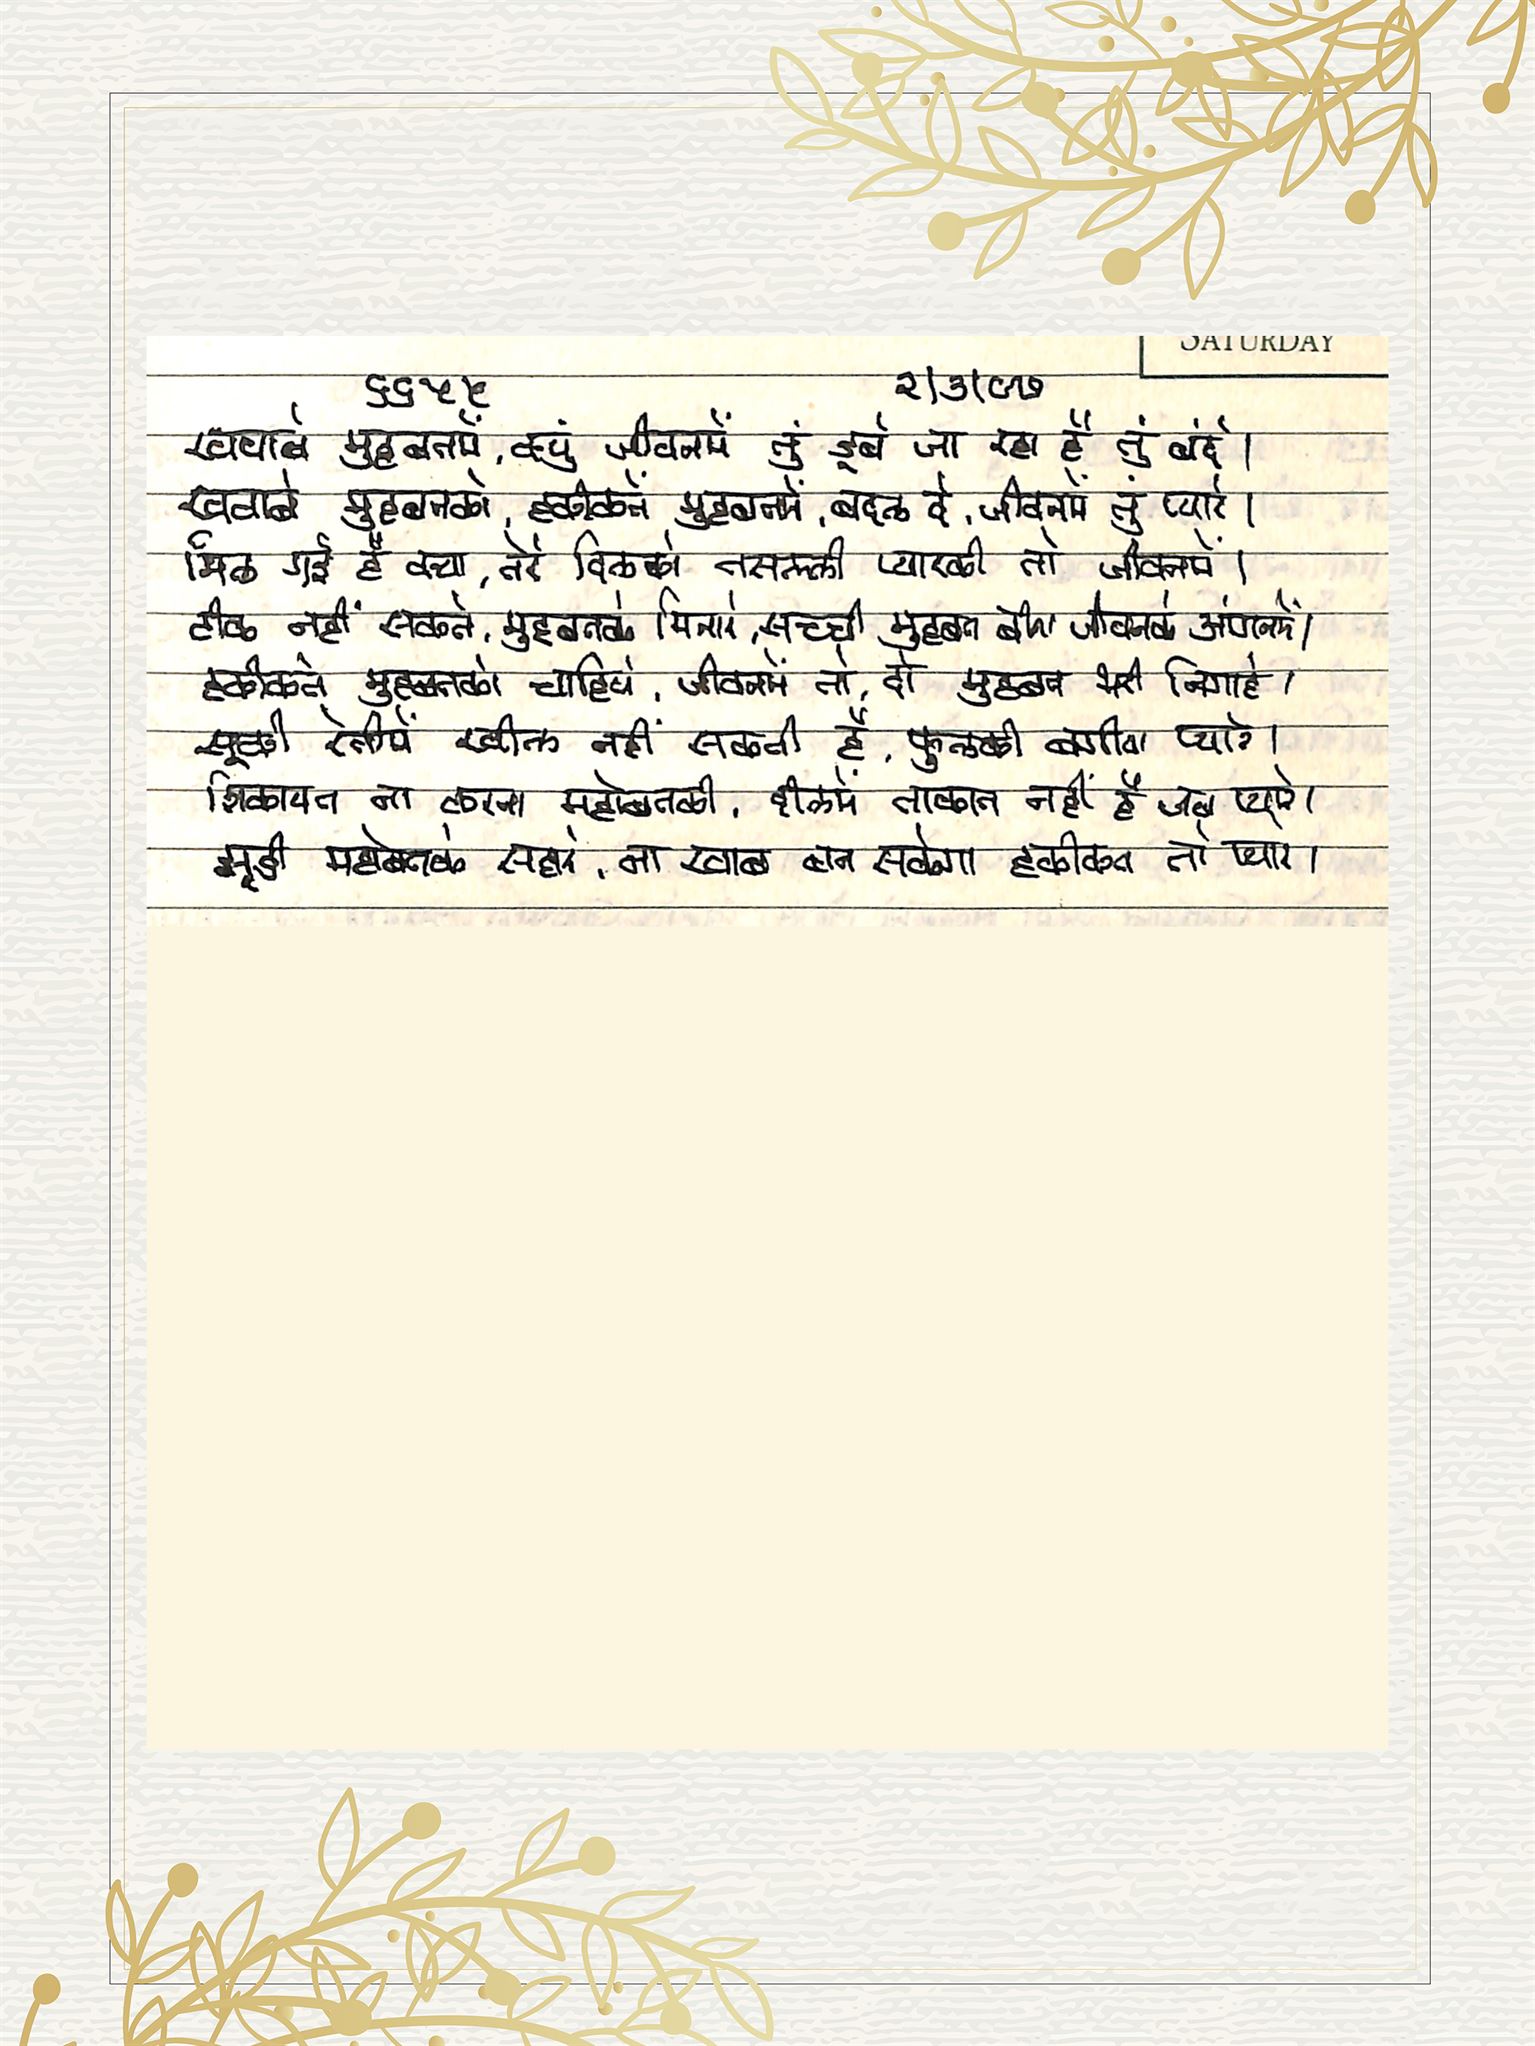 SATURDAY
६६५५ २/३/९७
ख्वाबे मुहबतमें, क्युं जीवनमें तुं डूबे जा रहा है तुं बंदे।
ख्वाबे मुहबतको, हकीकते मुहबतमें, बदल दे, जीवनमें तुं प्यारे।
मिल गई है क्या, तेरे दिलको तसल्ली प्यारकी तो जीवनमें।
टीक नहीं सकते, मुहबतके मिनारे, सच्ची मुहबत बीना जीवनके अंगनमें।
हकीकते मुहबतको चाहिये, जीवनमें तो, दो मुहबत भरी निगाहे।
सूकी रेतीमें खील नहीं सकती है, फुलकी बगीया प्यारे।
शिकायत ना करना महोबतकी, दीलमें ताकात नहीं है जब प्यारे।
झूठी महोबतके सहारे, ना ख्वाब बन सकेगा हकीकत तो प्यारे।